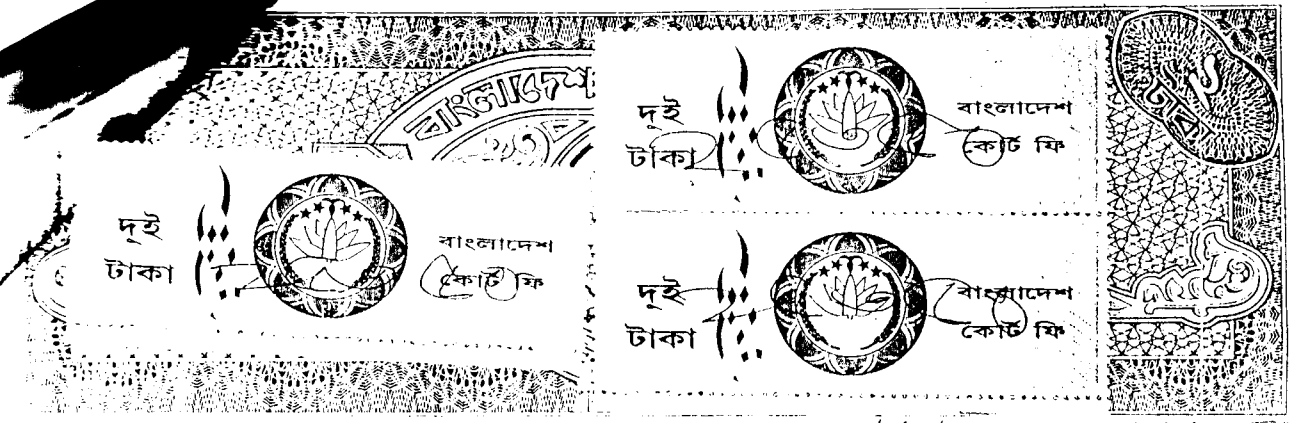 বাংলাদেশ
দুই
টাকা
বাংলাদেশ
কোর্ট ফি
দুই
টাকা
বাংলাদেশ
কোর্ট ফি
দুই
টাকা
বাংলাদেশ
কোর্ট ফি